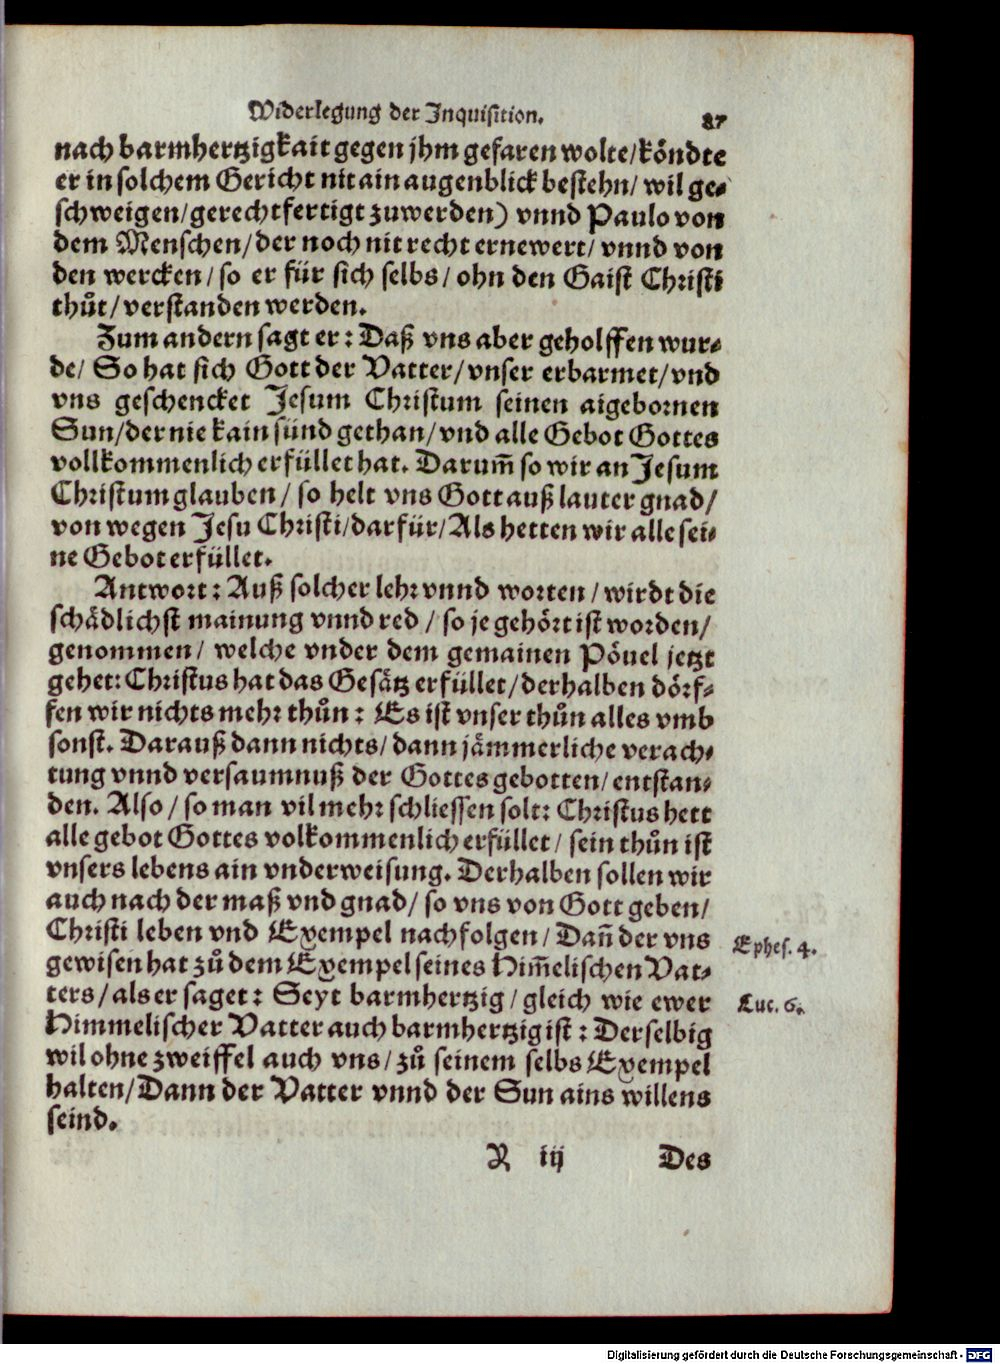 Widerlegung der Inquisition. 87
nach barmhertzigkait gegen jhm gefaren wolte/köndte
er in solchem Gericht nit ain augenblick bestehn/ wil ge⸗
schweigen/gerechtfertigt zuwerden) vnnd Paulo von
dem Menschen/der noch nit recht ernewert/ vnnd von
den wercken/so er für sich selbs/ ohn den Gaist Christi
thůt/verstanden werden.
Zum andern sagt er: Daß vns aber geholffen wur⸗
de/ So hat sich Gott der Vatter/vnser erbarmet/vnd
vns geschencket Jesum Christum seinen aigebornen
Sun/der nie kain sünd gethan/vnd alle Gebot Gottes
vollkommenlich erfüllet hat. Darum̃ so wir an Jesum
Christum glauben/ so helt vns Gott auß lauter gnad/
von wegen Jesu Christi/darfür/Als hetten wir alle sei⸗
ne Gebot erfüllet.
Antwort: Auß solcher lehr vnnd worten/wirdt die
schädlichst mainung vnnd red/so je gehört ist worden/
genommen/ welche vnder dem gemainen Pövel jetzt
gehet: Christus hat das Gesätz erfüllet/derhalben dörf⸗
fen wir nichts mehr thůn: Es ist vnser thůn alles vmb
sonst. Darauß dann nichts/dann jämmerliche verach⸗
tung vnnd versaumnuß der Gottes gebotten/entstan⸗
den. Also/so man vil mehr schliessen solt: Christus hett
alle gebot Gottes volkommenlich erfüllet/ sein thůn ist
vnsers lebens ain vnderweisung. Derhalben sollen wir
auch nach der maß vnd gnad/ so vns von Gott geben/
Christi leben vnd Exempel nachfolgen/Dañ der vns
Ephes. 4.
gewisen hat zů dem Exempel seines Him̃elischen Vat⸗
ters/als er saget: Seyt barmhertzig/gleich wie ewer
Luc. 6.
Himmelischer Vatter auch barmhertzig ist: Derselbig
wil ohne zweiffel auch vns/zů seinem selbs Exempel
halten/Dann der Vatter vnnd der Sun ains willens
seind.
R iij Des
Digitalisierung gefördert durch die Deutsche Forschungsgemeinschaft - DFG